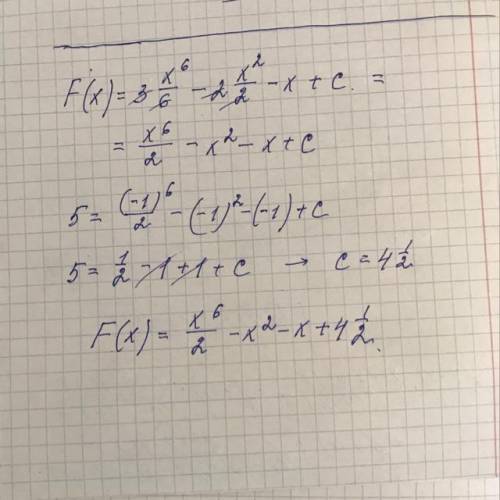 F(x) = 3 x^6/6 - 2 x^2/2 - x + c. =
= x^6/2 - x^2 - x + c
5 = (-1)^6/2 - (-1)^2 - (-1) + c
5 = 1/2 - 1 + 1 + c → c = 4 1/2
F(x) = x^6/2 - x^2 - x + 4 1/2.